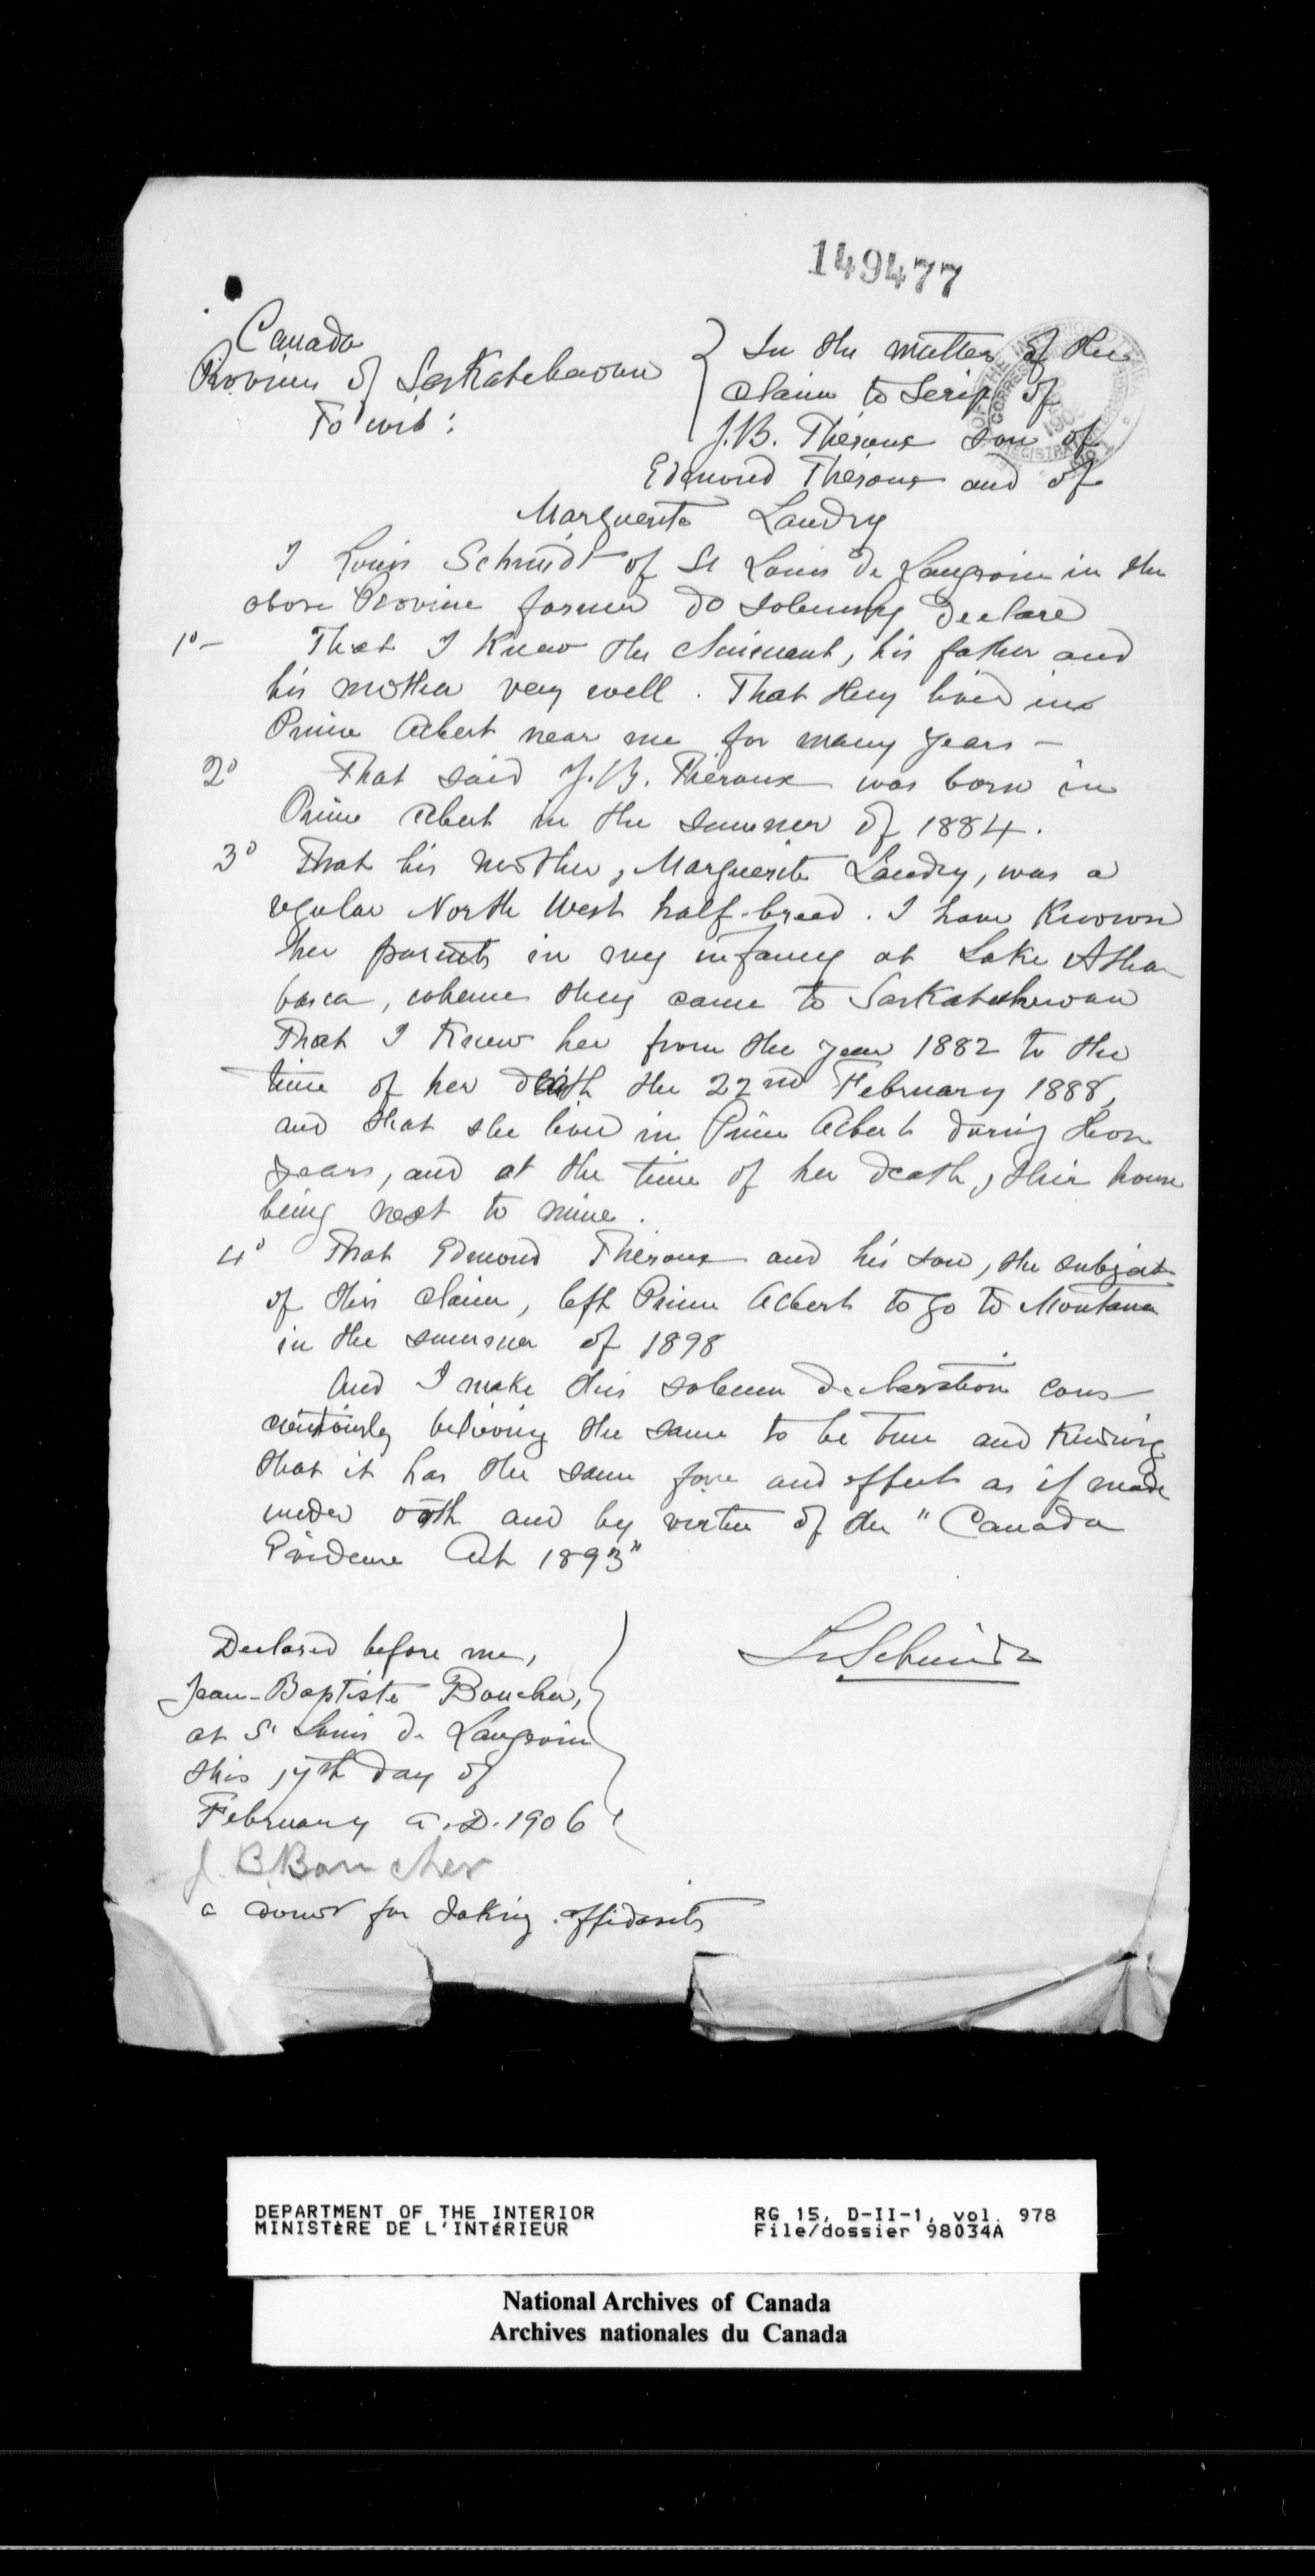 149477
Canada
Province of Saskatchewan
To wit:
In the matter of the
claim to Scrip of
J.B. Théroux son of
Edmond Théroux and of
Marguerite Landry
I Louis Schmidt of St Louis de Langevin in the
above Province farmer do solemnly declare
1º- That I know the claimant, his father and
his mother very well. That they lived in
Prince Albert near me for many years -
2º That said J.B. Théroux was born in
Prince Albert in the summer of 1884.
3º That his mother, Marguerite Landry, was a
regular North West half-breed. I have known
her parents in my infancy at Lake Atha
basca, whence they came to Saskatchewan
That I knew her from the year 1882 to the
time of her death the 22nd February 1888,
and that she lived in Prince Albert during those
years, and at the time of her death, their house
being next to mine.
4º That Edmond Théroux and his son, the subject
of this claim, left Prince Albert to go to Montana
in the summer of 1898
And I make this solemn declaration cons
cientiously believing the same to be true and knowing
that it has the same force and effect as if made
under oath and by virtue of the "Canada
Evidence Act 1893"
L. Schmidt
Declared before me,
Jean-Baptiste Boucher,
at St Louis de Langevin
this 17th day of
February A.D. 1906
J. B. Boucher
a Comr for taking affidavits
DEPARTMENT OF THE INTERIOR
MINISTÈRE DE L'INTÉRIEUR
RG 15, D-II-1, vol. 978
File/dossier 98034A
National Archives of Canada
Archives nationales du Canada